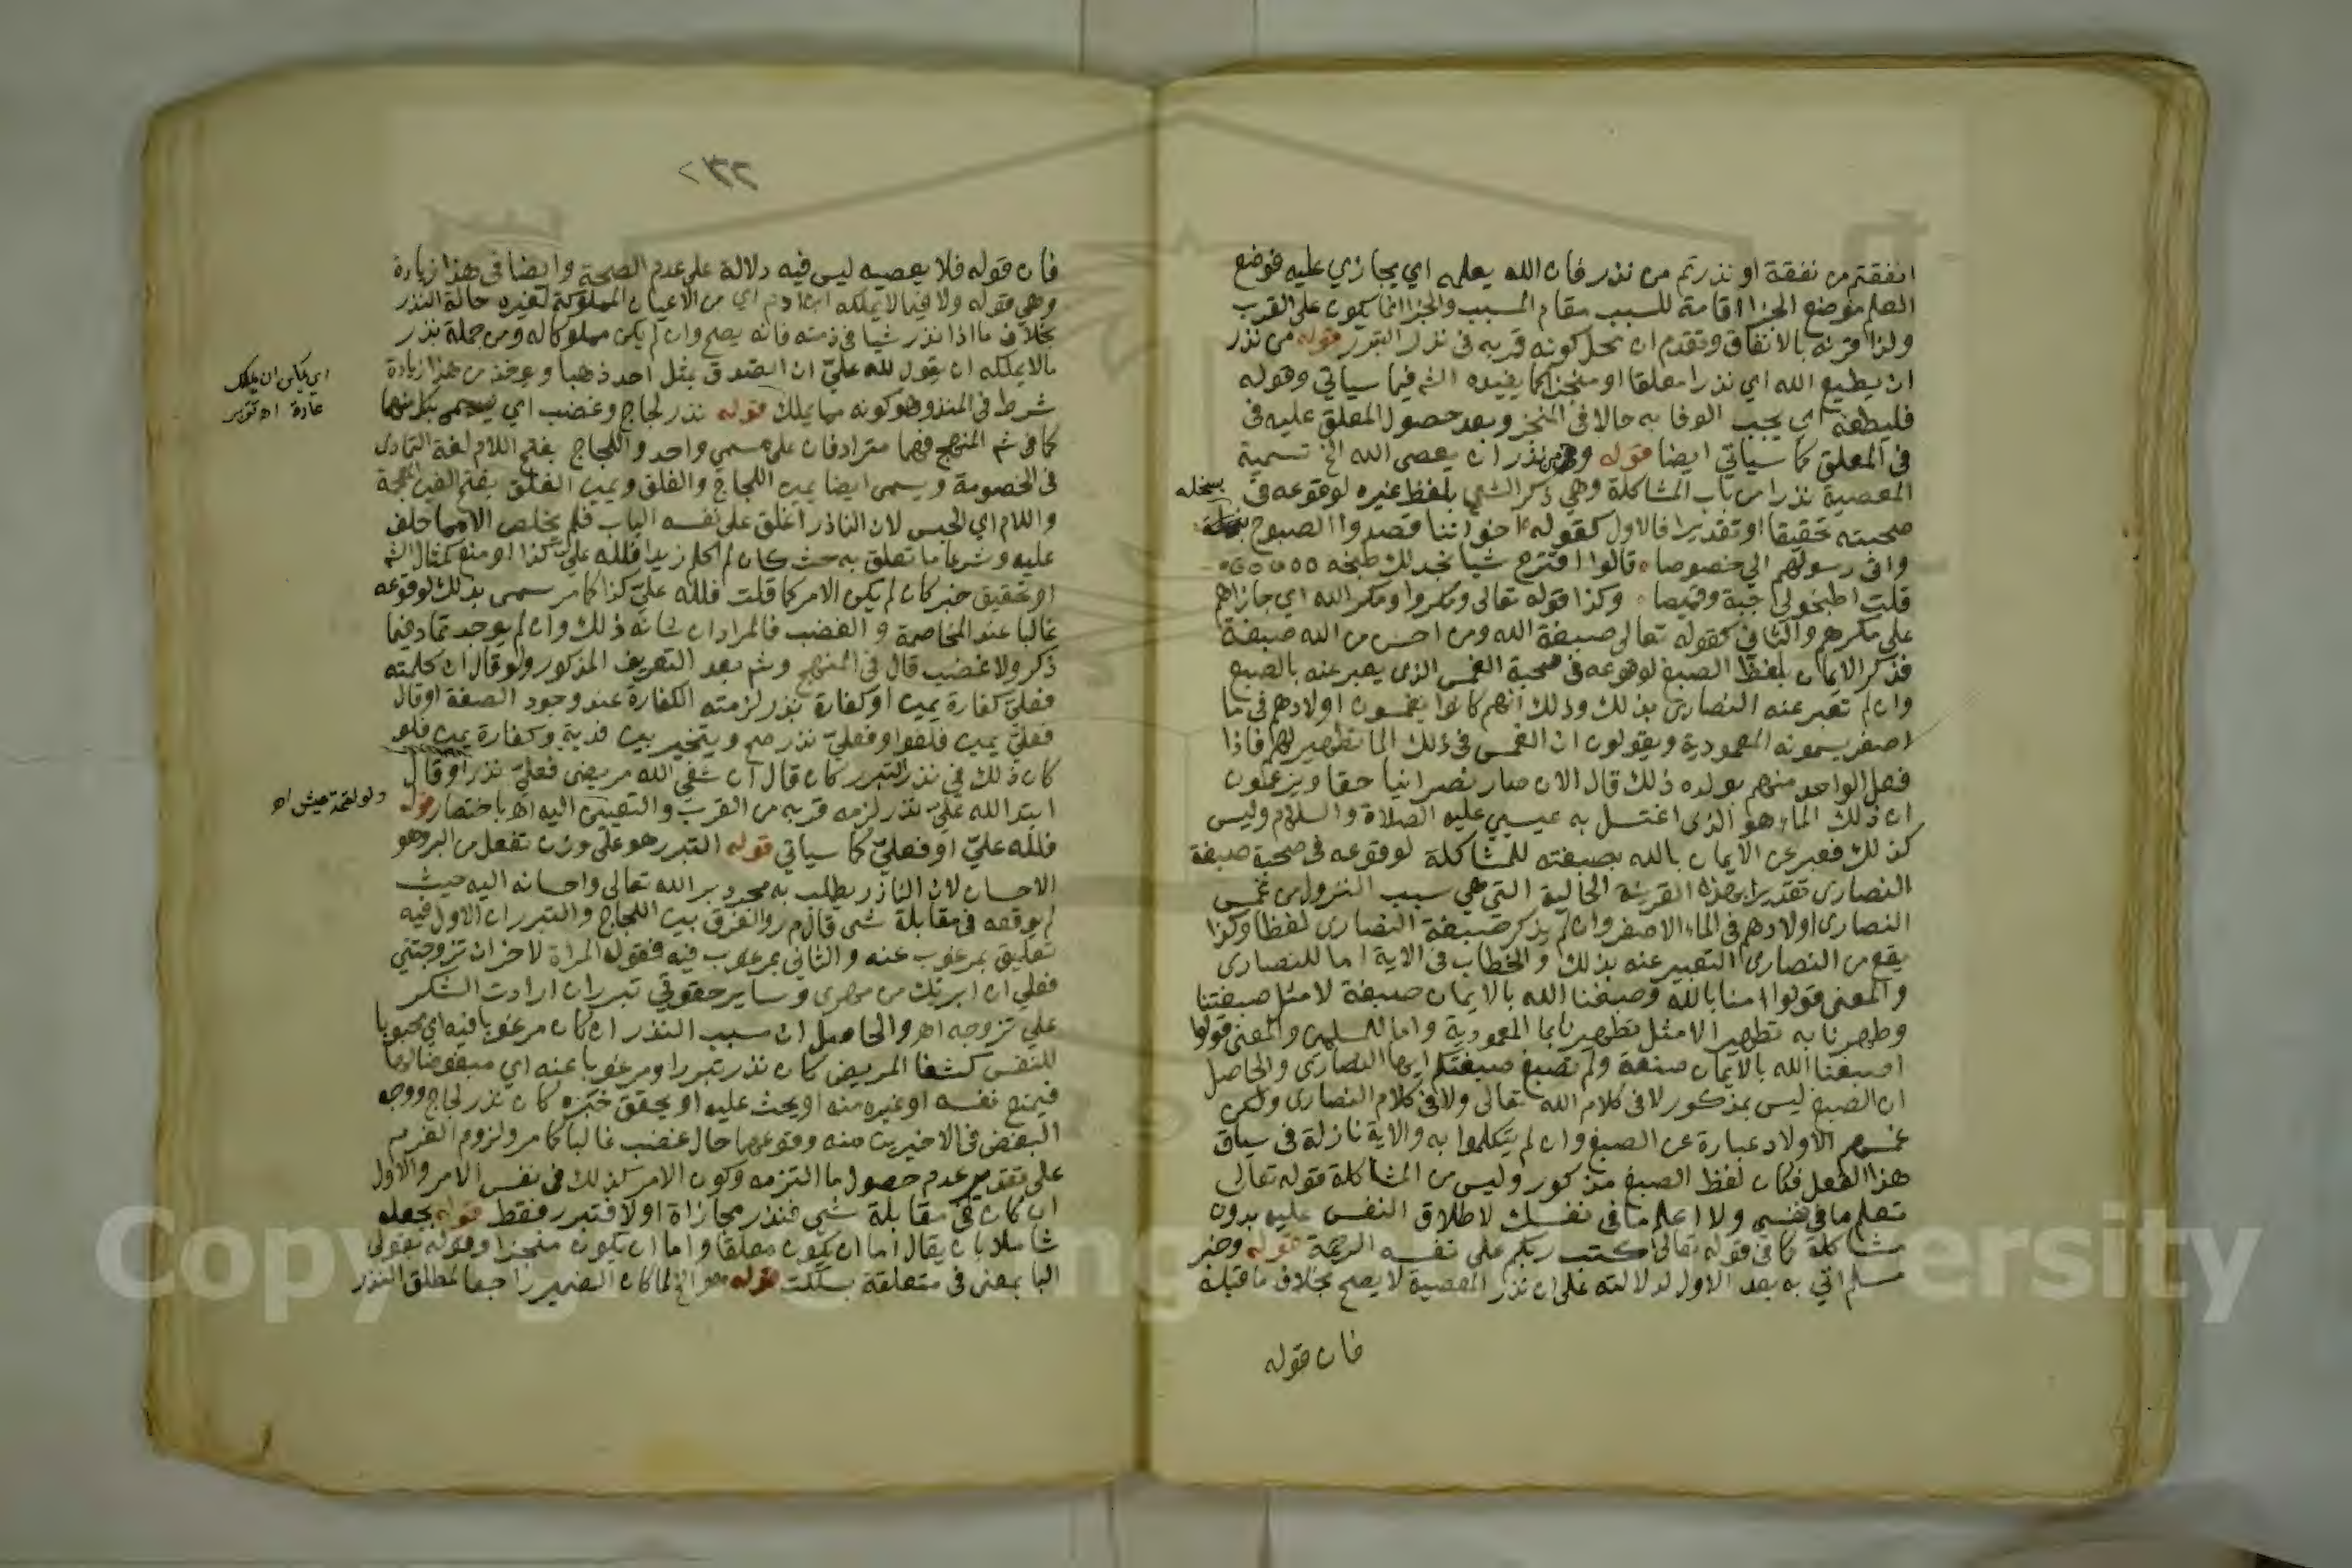 انفقتم من نفقة او نذرتم من نذر فان الله يعلمه اي يجازي عليه فوضع
العلم موضع الجزا اقامة للسبب مقام المسبب والجزا انما يكون على القرب
ولذا قرنه بالانفاق وتقدم ان محل كونه قربه في نذر التبرر قوله من نذر
ان يطيع الله اي نذرا معلقا او منجزا كما يفيده الشم فيما سياتي وقوله
فليطعه اي يجب الوفا به حالا في المنجز وبعد حصول المعلق عليه في
في المعلق كما سياتي ايضا قوله ومن نذر ان يعصى الله الخ تسمية
المعصية نذرا من باب المشاكلة وهي ذكر الشي بلفظ غيره لوقوعه في
صحبته تحقيقا او تقديرا فالاول كقوله اخواننا قصدوا الصبوح
واتى رسولهم الي خصوصا قالوا اقترح شيا نجد لك طبخه
قلت اطبخوا لي جبة وقميصا وكذا قوله تعالى ومكروا ومكر الله اي جازاهم
على مكرهم والثاني كقوله تعالى صبغة الله ومن احسن من الله صبغة
فذكر الايمان بلفظ الصبغ لوقوعه في صحبة الغمس الذي يعبر عنه بالصبغ
وان لم تعبر عنه النصارى بذلك وذلك انهم كانوا يغمسون اولادهم في ما
اصفر يسمونه المعمودية ويقولون ان الغمس في ذلك الما تطهير لهم فاذا
فعل الواحد منهم بولده ذلك قال الان صار نصرانيا حقا ويزعمون
ان ذلك الماء هو الذي اغتسل به عيسي عليه الصلاة والسلام وليس
كذلك فعبر عن الايمان بالله بصبغته للمشاكلة لوقوعه في صحبة صبغة
النصارى تقديرا بهذه القرينة الحالية التي هي سبب النزول من غمس
النصارى اولادهم في الماء الاصفر وان لم يذكر صبغة النصارى لفظا وكذا
يقع من النصارى التعبير عنه بذلك والخطاب في الاية اما للنصارى
والمعنى قولوا امنا بالله وصبغنا الله بالايمان صبغة لا مثل صبغتنا
وطهرنا به تطهيرا لا مثل تطهيرنا بما المعمودية واما للمسلمين والمعنى قولوا
صبغنا الله بالايمان صبغة ولم نصبغ صبغتكم ايها النصارى والحاصل
ان الصبغ ليس بمذكور لا في كلام الله تعالى ولا في كلام النصارى ولكن
غمسهم الاولاد عبارة عن الصبغ وان لم يتكلموا به والاية نازلة في سياق
هذا الفعل فكان لفظ الصبغ مذكور وليس من المشاكلة قوله تعالى
تعلم ما في نفسي ولا اعلم ما في نفسك لاطلاق النفس عليه بدون
مشاكلة كما في قوله تعالى كتب ربكم على نفسه الرحمة قوله وخبر
مسلم اتي به بعد الاول لدلالته على ان نذر المعصية لا يصح بخلاف ما قبله
فان قوله
فان قوله فلا يعصيه ليس فيه دلالة على عدم الصحة وايضا في هذا زيادة
وهي قوله ولا فيما لا يملكه ابن ادم اي من الاعيان المملوكة لغيره حالة النذر
بخلاف ما اذا نذر شيا في ذمته فانه يصح وان لم يكن مملوكا له ومن جملة نذر
ما لا يملكه ان يقول لله عليّ ان اتصدق بمثل احد ذهبا وعرفنا من هذا زيادة
شرط في المنذور وهو كونه مما يملك قوله نذر لجاج وغضب اي يسمى بكل منهما
كما في شم المنهج فهما مترادفان على مسمي واحد واللجاج بفتح اللام لغة التمادى
في الخصومة ويسمى ايضا يمين اللجاج والغلق ويمين الغلق بفتح الغين المعجمة
واللام اي الحبس لان الناذر اغلق على نفسه الباب فلم يخلص الا مما حلف
عليه وشرعا ما تعلق به حث كان لم اكلم زيدا فلله علي كذا او منع كمثال الشم
او تحقيق خبر كان لم يكن الامر كما قلت فلله عليّ كذا كما مر سمى بذلك لوقوعه
غالبا عند المخاصمة والغضب فالمراد ان شانه ذلك وان لم يوجد تماد فيما
ذكر ولا غضب قال في المنهج وشم بعد التعريف المذكور ولو قال ان كلمته
فعليّ كفارة يمين او كفارة نذر لزمته الكفارة عند وجود الصفة او قال
فعليّ يمين فلغو او فعليّ نذر صح ويتخير بين قربة وكفارة يمين فلو
كان ذلك في نذر التبرر كان قال ان شفي الله مريضى فعليّ نذر او قال
ابتدا لله عليّ نذر لزمه قربه من القرب والتعيين اليه اه باختصار قوله
فلله عليّ او فعليّ كما سياتي قوله التبرر هو على وزن تفعل من البر وهو
الاحسان لان الناذر يطلب به محدود بر الله تعالى واحسانه اليه حيث
لم يوقعه في مقابلة شى قال م ر والفرق بين اللجاج والتبرر ان الاول فيه
تعليق بمرغوب عنه والثاني بمرغوب فيه فقول المراة لاخر ان تزوجتني
فعلي ان ابريك من مهرى وساير حقوقي تبرر ان ارادت الشكر
على تزوجه اه والحاصل ان سبب النذر ان كان مرغوبا فيه اي محبوبا
للنفس كشفا المريض كان نذر تبرر او مرغوبا عنه اي مبغوضا لها
فيمنع نفسه او غيره منه او يحث عليه او يحقق خبره كان نذر لجاج ووجه
البغض في الاخيرين منه وقوعهما حال غضب غالبا كما مر ولزوم الغرم
على تقدير عدم حصول ما التزمه وكون الامر كذلك في نفس الامر والاول
ان كان في مقابلة شى فنذر مجازاة اولا فتبرر فقط قوله بجعله
شاملا بان يقال اما ان يكون معلقا واما ان يكون منجزا وقوله بقولى
البا بمعنى في متعلقة بسكت قوله هو الخ لما كان الضمير راجعا لمطلق النذر
اي يمكن ان يملك
عادة اه تقرير